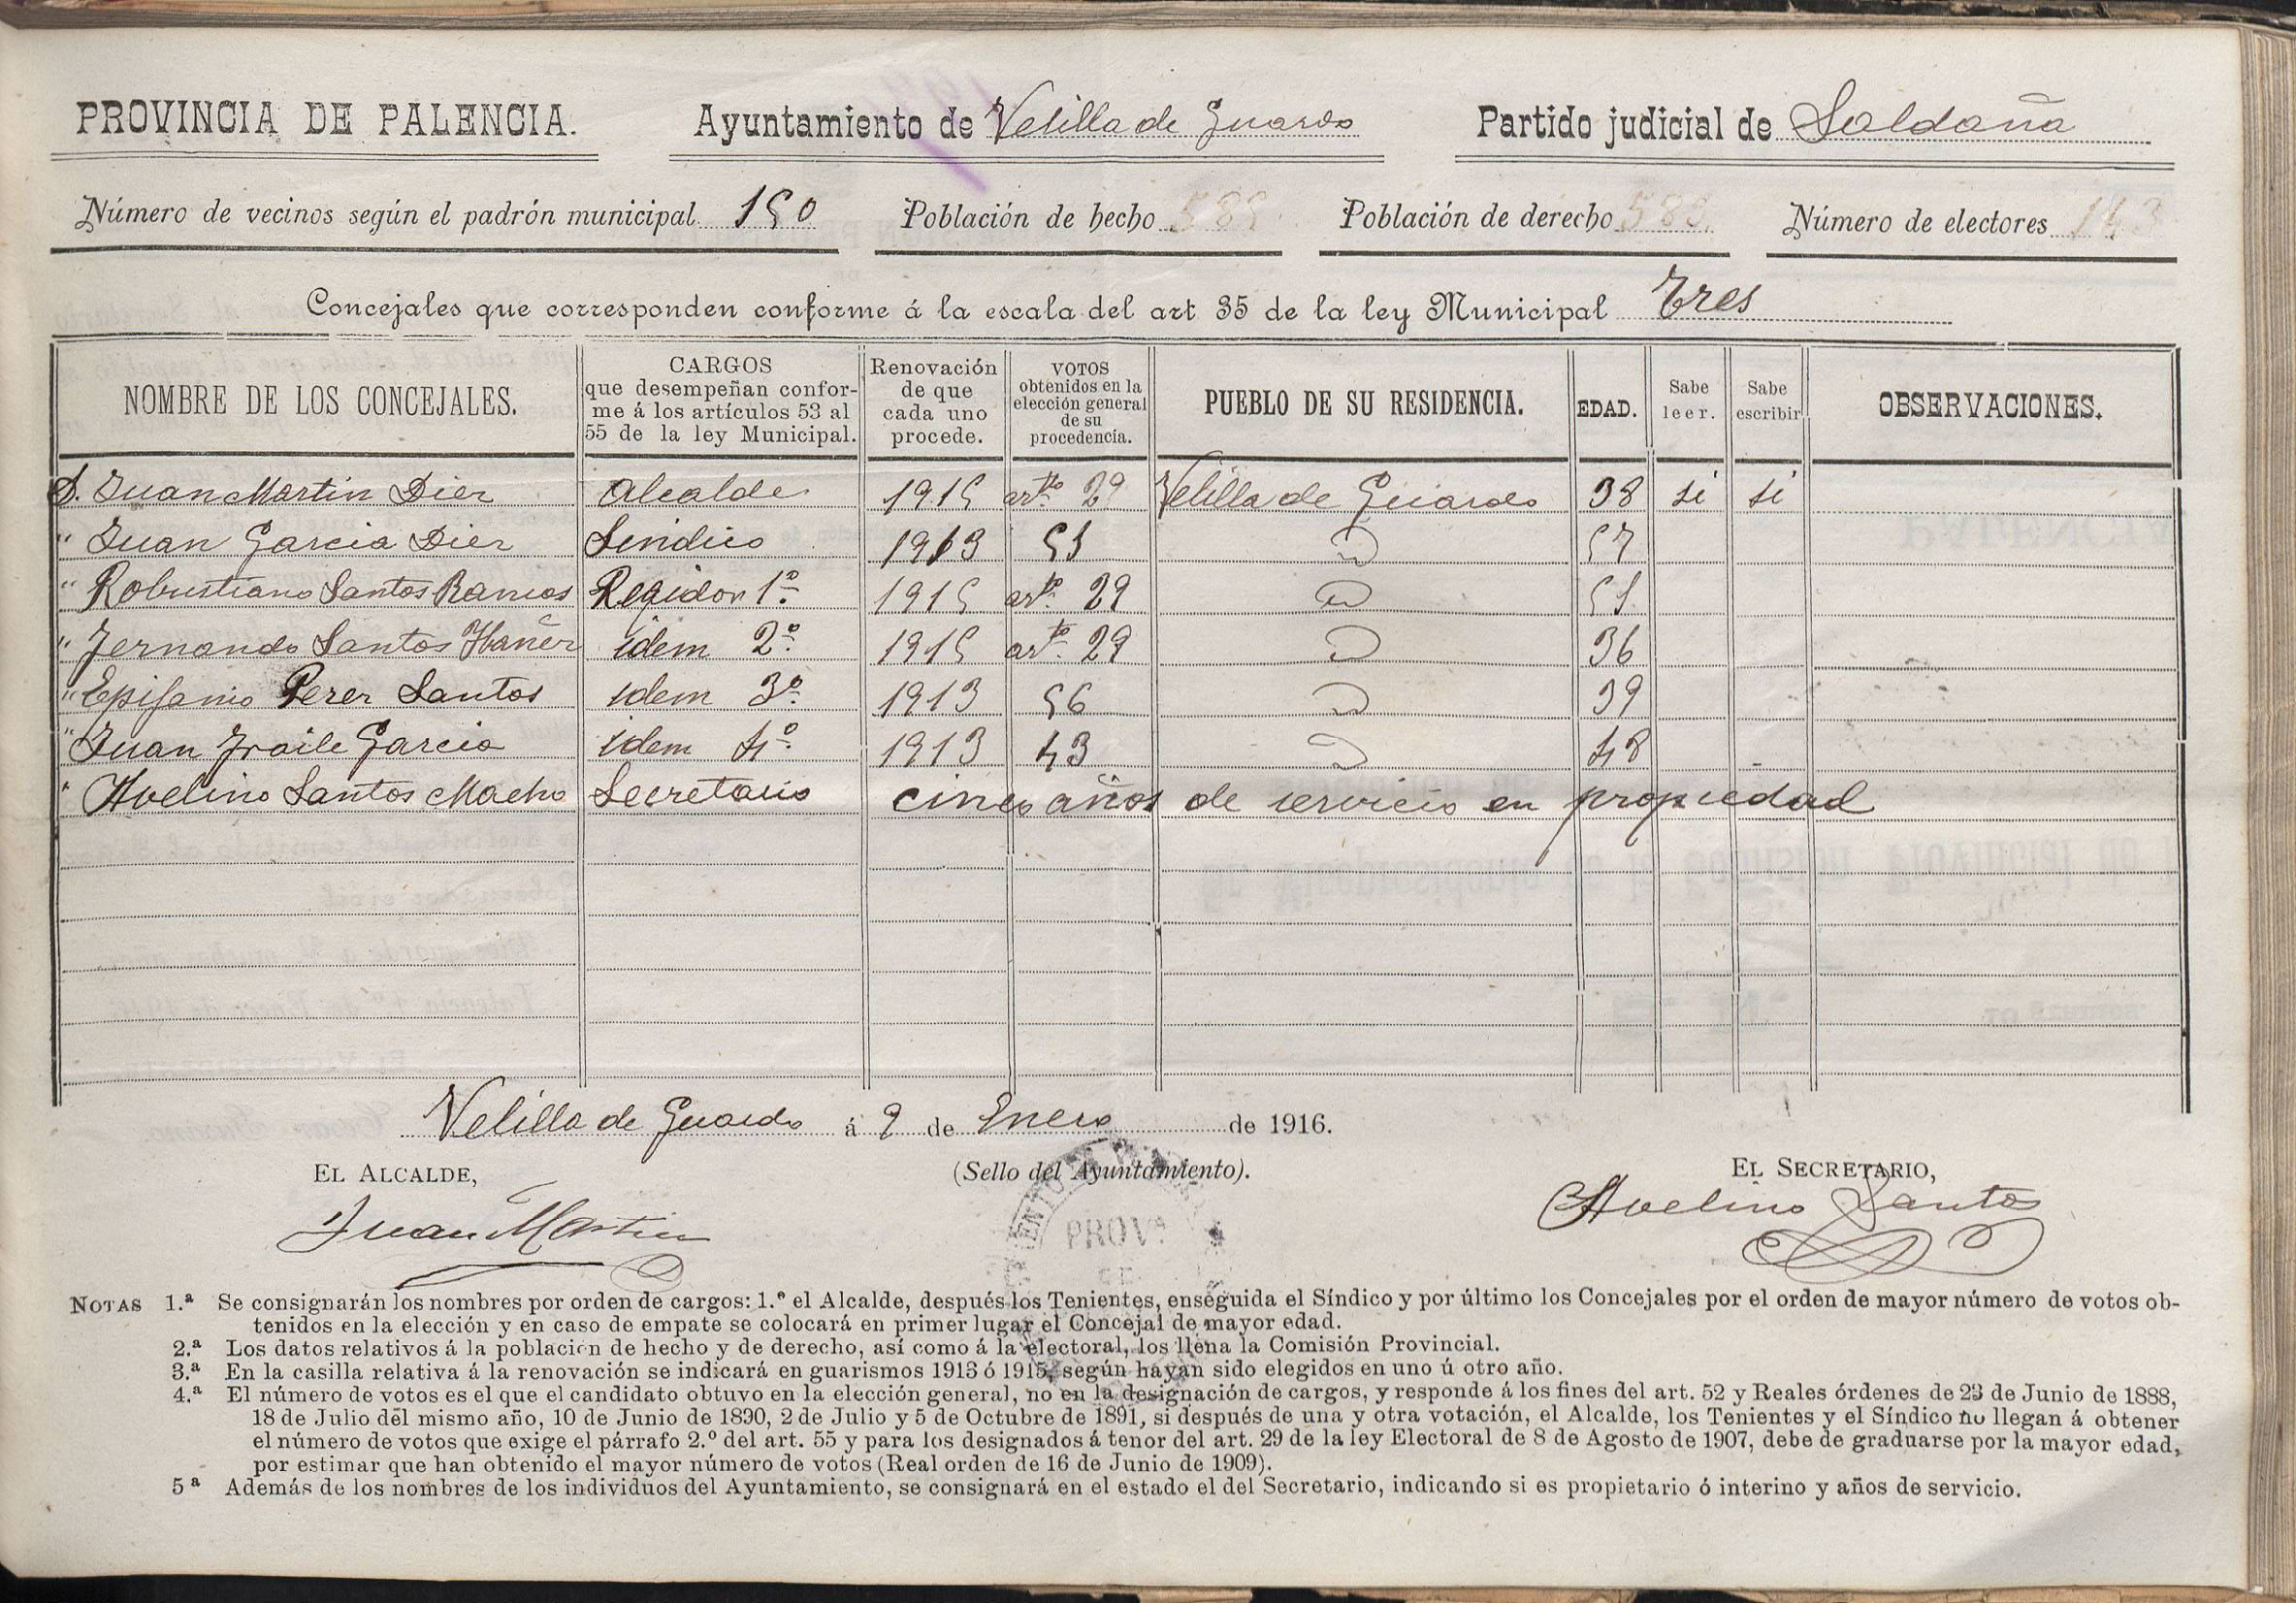 PROVINCIA DE PALENCIA. Ayuntamiento de Velilla de Guardo Partido judicial de Saldaña
Número de vecinos según el padrón municipal 150 Población de hecho Población de derecho Número de electores 143
Concejales que corresponden conforme á la escala del art 35 de la ley Municipal Tres
NOMBRE DE LOS CONCEJALES.
CARGOS
que desempeñan confor-
me á los artículos 53 al
55 de la ley Municipal.
Renovación
de que
cada uno
procede.
VOTOS
obtenidos en la
elección general
de su
procedencia.
PUEBLO DE SU RESIDENCIA.
EDAD.
Sabe
leer.
Sabe
escribir
OBSERVACIONES.
D. Juan Martin Dier Alcalde 1915 artº 29 Velilla de Guardo 38 si si
" Juan Garcia Dier Sindico 1913 51 57
" Robustiano Santos Ramos Regidor 1º 1915 artº 29 51
" Fernando Santos Ibañer idem 2º 1915 artº 29 36
" Epifanio Perer Santos idem 3º 1913 56 39
" Juan Fraile Garcia idem 4º 1913 43 48
" Avelino Santos Macho Secretario cinco años de servicio en propiedad
Velilla de Guardo á 9 de Enero de 1916.
EL ALCALDE, (Sello del Ayuntamiento). EL SECRETARIO,
Juan Martin Avelino Santos
PROVª
DE
NOTAS 1.ª Se consignarán los nombres por orden de cargos: 1.º el Alcalde, después los Tenientes, enseguida el Síndico y por último los Concejales por el orden de mayor número de votos ob-
tenidos en la elección y en caso de empate se colocará en primer lugar el Concejal de mayor edad.
2.ª Los datos relativos á la población de hecho y de derecho, así como á la electoral, los llena la Comisión Provincial.
3.ª En la casilla relativa á la renovación se indicará en guarismos 1913 ó 1915, según hayan sido elegidos en uno ú otro año.
4.ª El número de votos es el que el candidato obtuvo en la elección general, no en la designación de cargos, y responde á los fines del art. 52 y Reales órdenes de 23 de Junio de 1888,
18 de Julio del mismo año, 10 de Junio de 1890, 2 de Julio y 5 de Octubre de 1891, si después de una y otra votación, el Alcalde, los Tenientes y el Síndico no llegan á obtener
el número de votos que exige el párrafo 2.º del art. 55 y para los designados á tenor del art. 29 de la ley Electoral de 8 de Agosto de 1907, debe de graduarse por la mayor edad,
por estimar que han obtenido el mayor número de votos (Real orden de 16 de Junio de 1909).
5ª Además de los nombres de los individuos del Ayuntamiento, se consignará en el estado el del Secretario, indicando si es propietario ó interino y años de servicio.